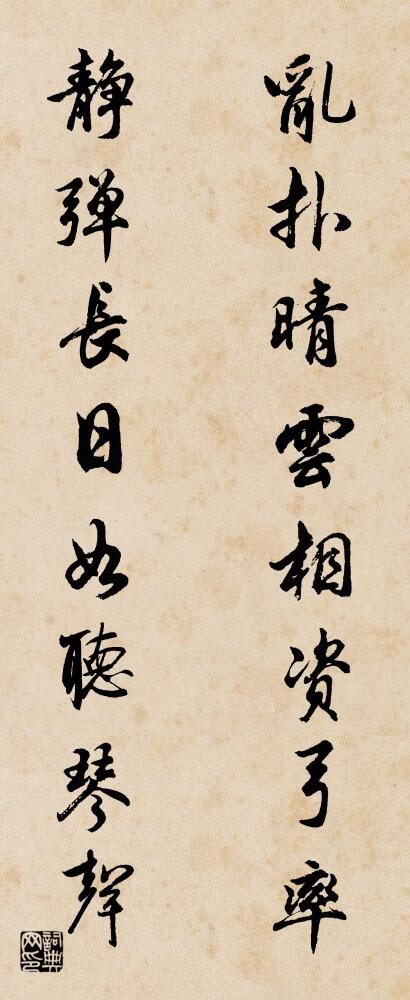 亂扑晴雲相資弓率
静弹長日如聽琴聲
詞典網印